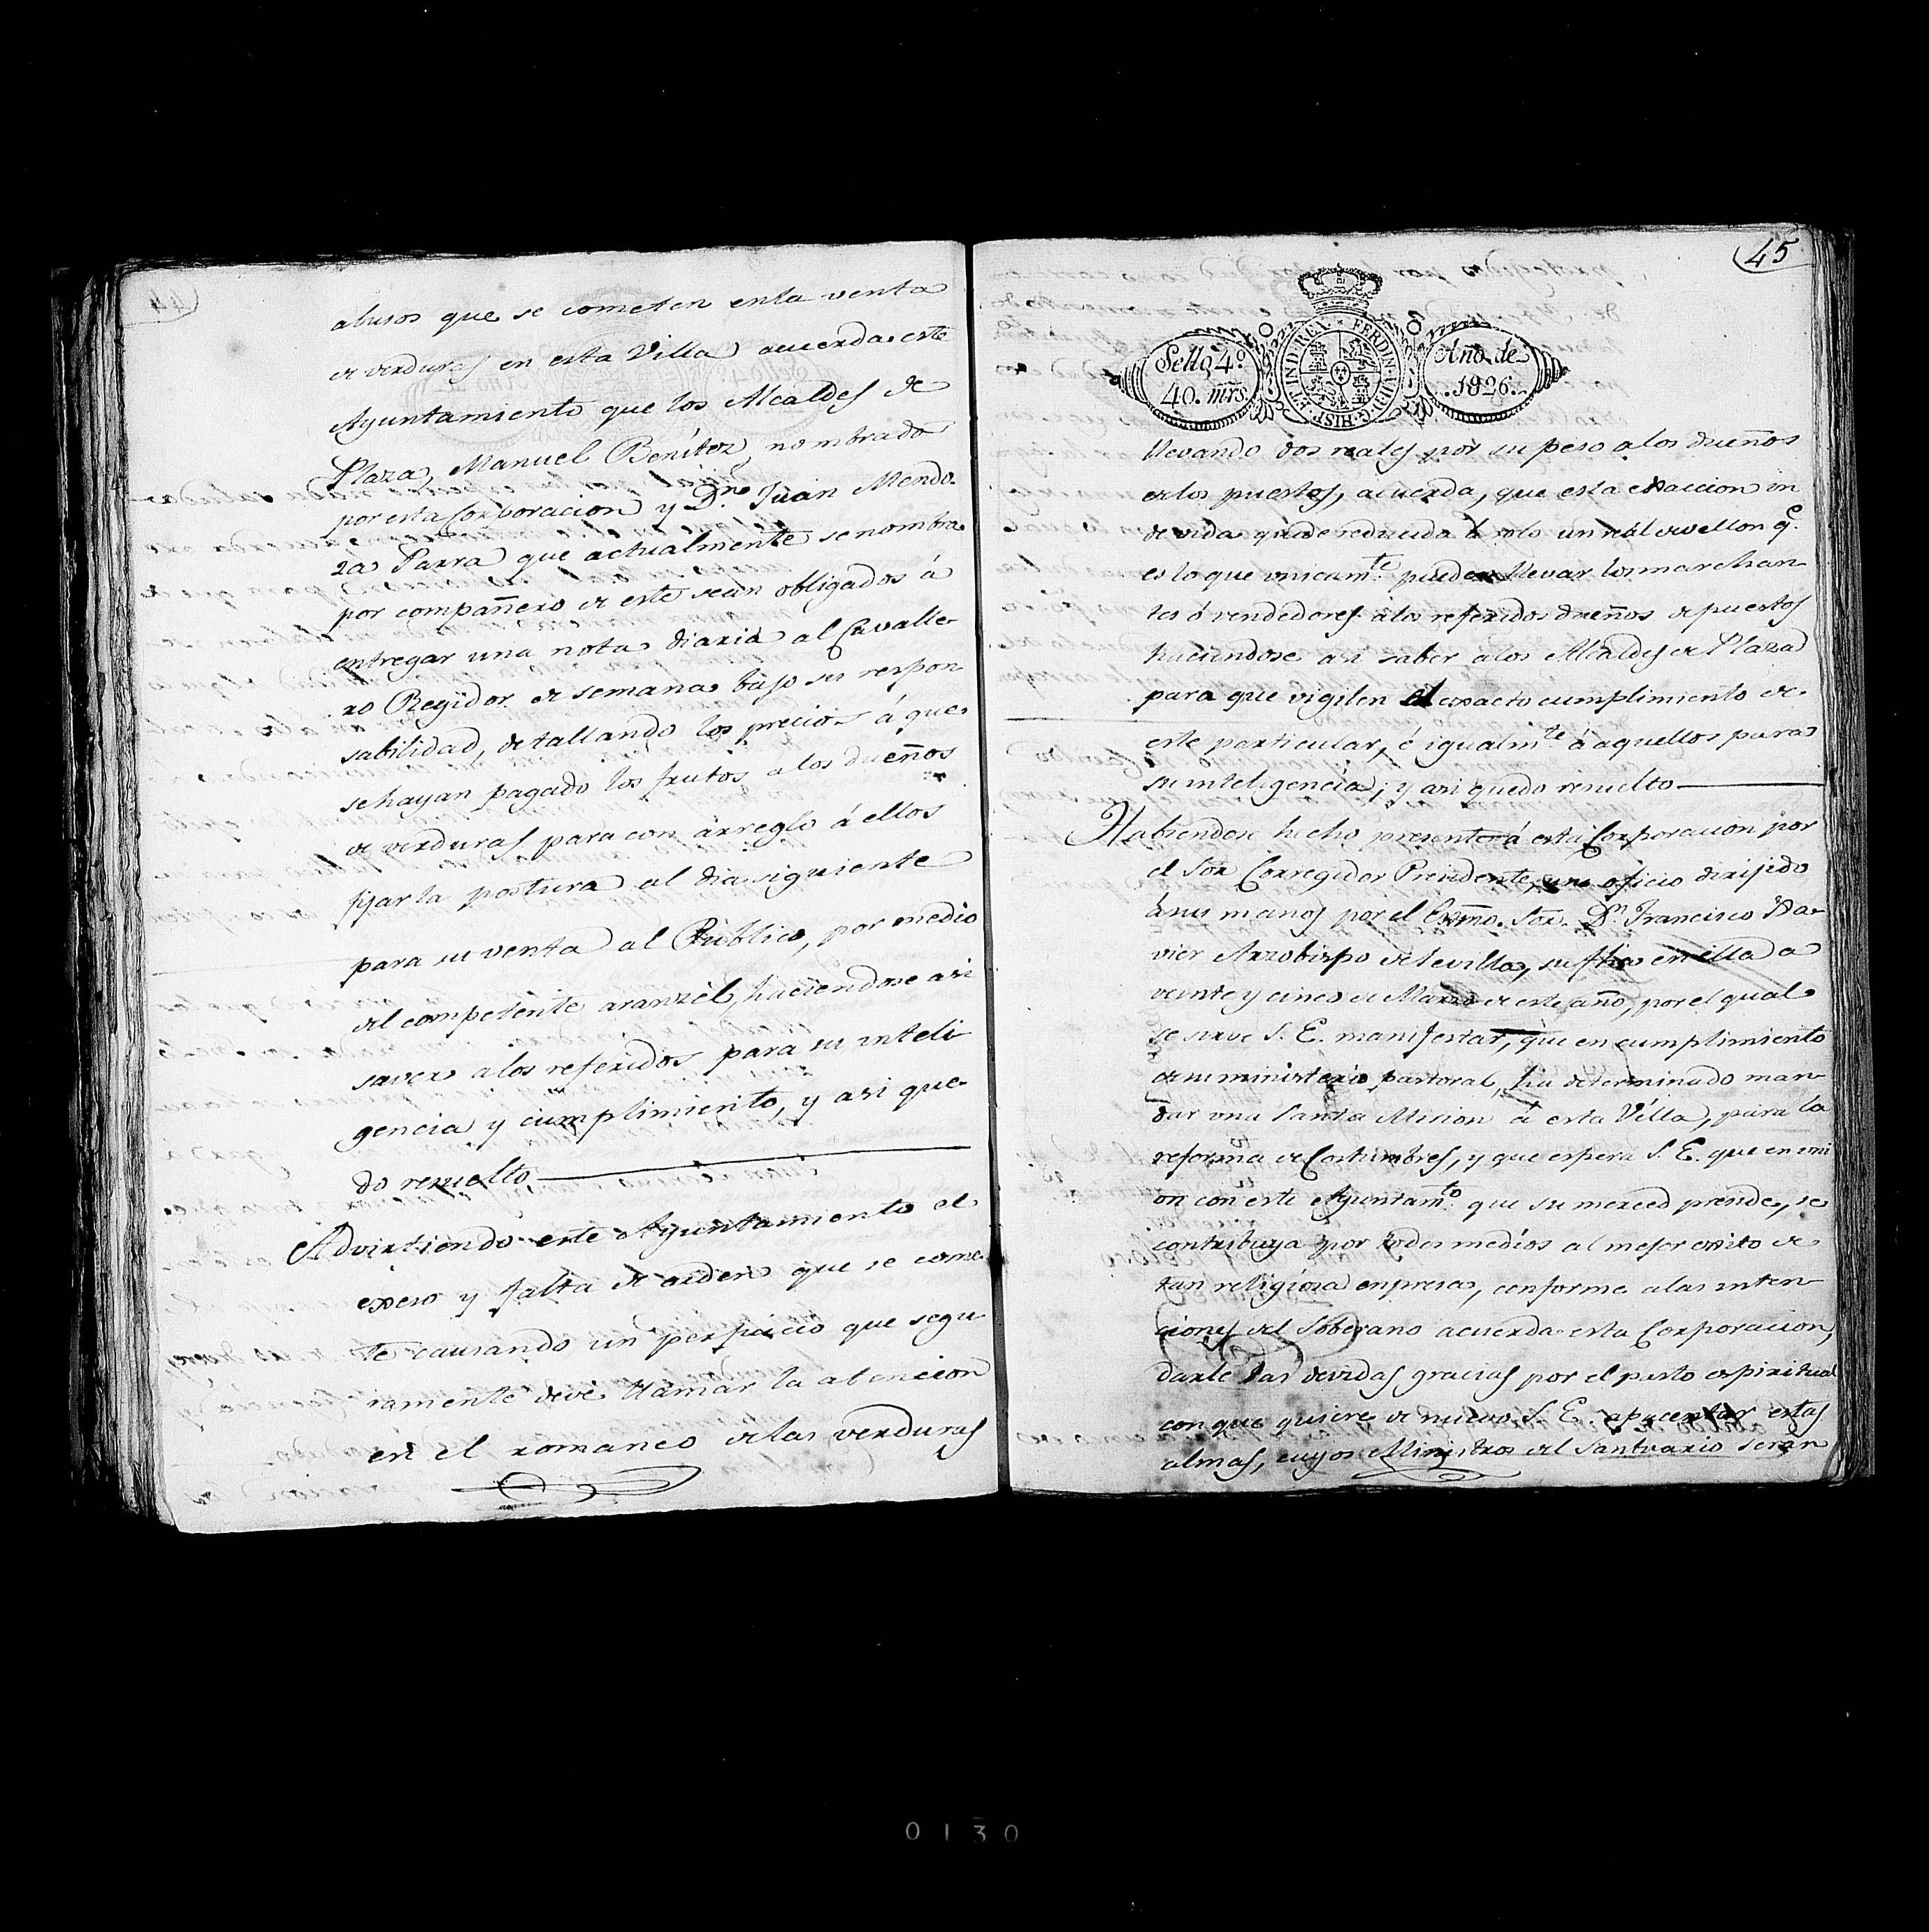 abusos que se cometen en la venta
de verduras en esta Villa acuerda este
Ayuntamiento que los Alcaldes de
Plaza, Manuel Benítez, nombrado
por esta Corporacion y Dn. Juan Mendo-
za Parra que actualmente se nombra
por compañero de este sean obligados á
entregar una nota diaria al Cavalle-
ro Regidor de semana bajo su respon-
sabilidad, detallando los precios á que
se hayan pagado los frutos a los dueños
de verduras para con arreglo á ellos
fijar la postura al dia siguiente
para su venta al Publico, por medio
del competente aranzèl, haciendose asi
saver a los referidos para su inteli-
gencia y cumplimiento, y asi que-
do resuelto
Advirtiendo este Ayuntamiento el
exseso y falta de orden que se come-
te causando un perjuicio que segu-
ramente devé llamar la atencion
en el romaneo de las verduras
45
Sello 4º
40. mrs.
FERDIN. VII. D. G. HISP. ET IND. REX
Año de
1826.
llevando dos reales por su peso a los dueños
de los puestos, acuerda, que esta exaccion in
devida quede reducida à solo un reàl de vellon q.e
es lo que unicam.te pueden llevar los marchan-
tes ó vendedores a los referidos dueños de puestos
haciendose asi saber a los Alcaldes de Plaza
para que vigilen el exacto cumplimiento de
este particular, é igualm.te á aquellos para
su inteligencia; y asi quedo resuelto
Habiendose hecho presente á esta Corporacion por
el Sor Corregidor Presidente, un oficio dirijido
à sus manos por el Exmo. Sor. Dn. Francisco Xa-
vier Arzobispo de Sevilla, su fha en illa a
veinte y cinco de Marzo de este año, por el qual
se sirve S. E. manifestar, que en cumplimiento
de su ministerio pastoral, ha determinado man-
dar una Santa Mision á esta Villa, para la
reforma de Costumbres, y que espera S. E. que en uni
on con este Ayuntam.to que su merced preside, se
contribuya por todos medios al mejor exito de
tan religiosa empresa, conforme a las inten-
ciones del Soberano acuerda esta Corporacion,
darle las devidas gracias por el pasto espiritual
con que quiere de nuevo S. E. apacentar estas
almas, cuyos Ministros del Santuario seran
0130